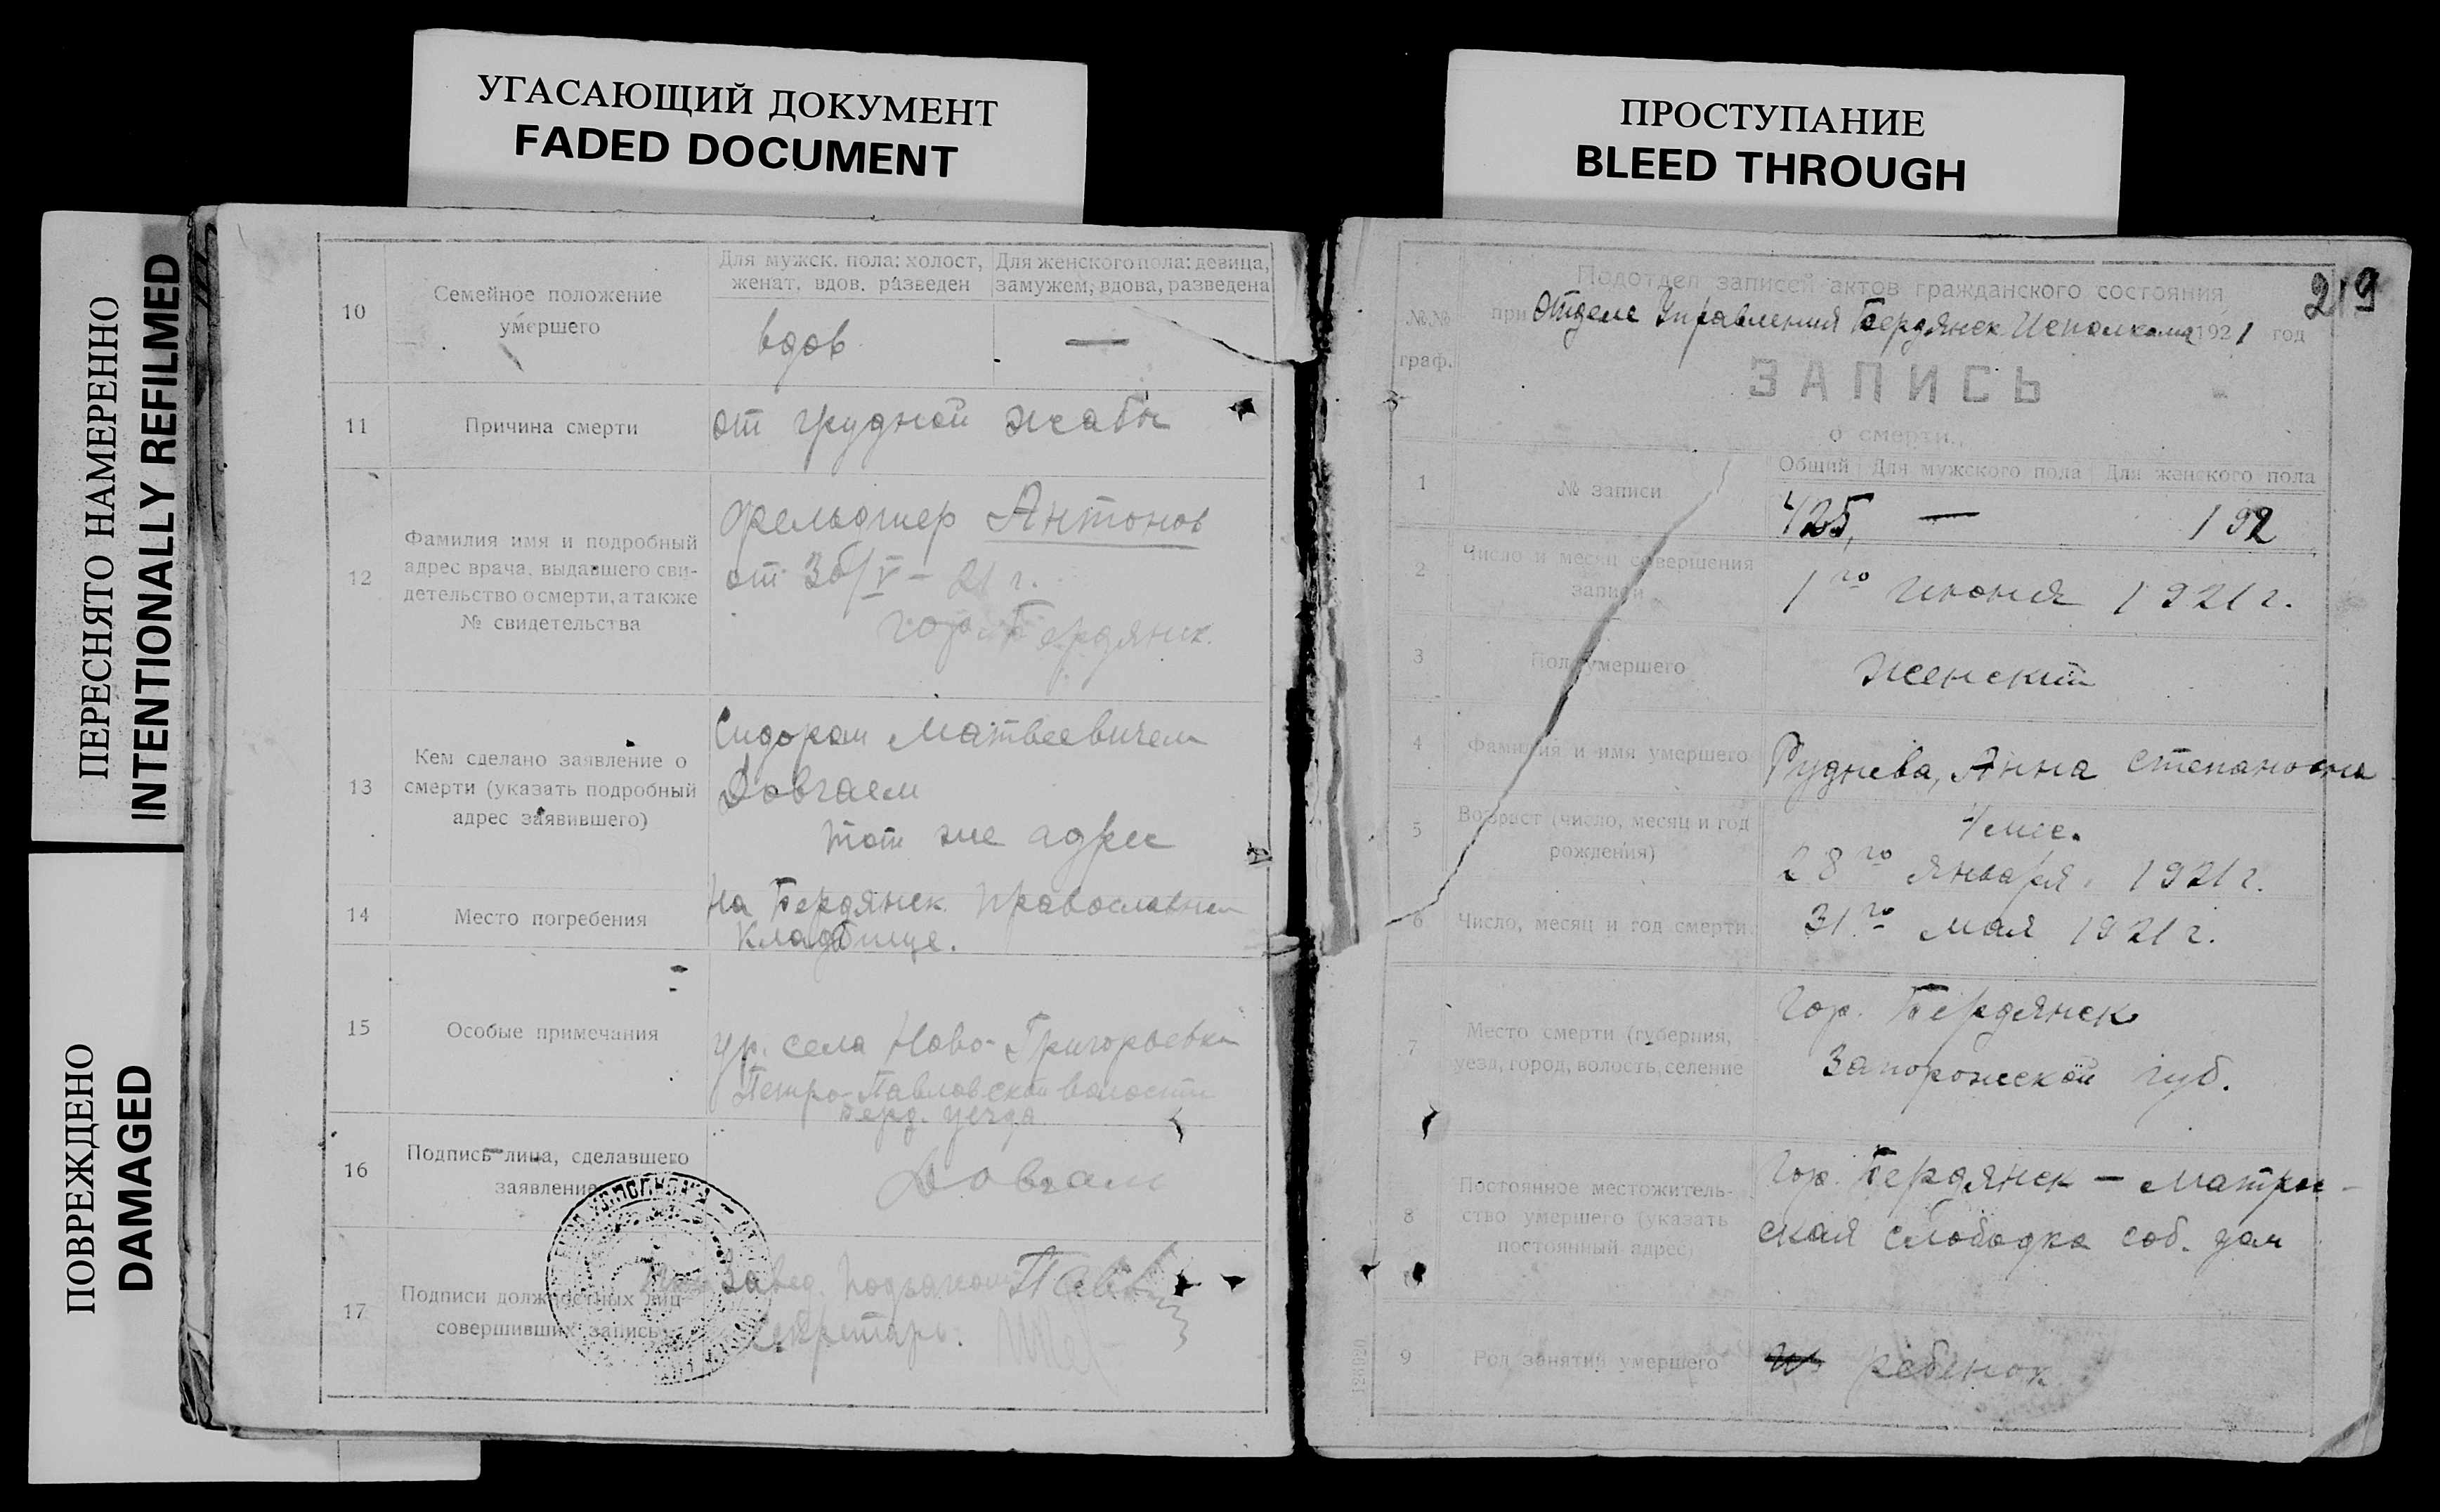 УГАСАЮЩИЙ ДОКУМЕНТ
FADED DOCUMENT
ПРОСТУПАНИЕ
BLEED THROUGH
ПЕРЕСНЯТО НАМЕРЕННО
INTENTIONALLY REFILMED
ПОВРЕЖДЕНО
DAMAGED
10
Семейное положение
умершего
Для мужск. пола: холост,
женат, вдов. разведен
Для женского пола: девица,
замужем, вдова, разведена
вдов
—
11
Причина смерти
от грудной жабы
12
Фамилия имя и подробный
адрес врача, выдавшего сви-
детельство о смерти, а также
№ свидетельства
фельдшер Антонов
от 30/V – 21 г.
гор. Бердянск.
13
Кем сделано заявление о
смерти (указать подробный
адрес заявившего)
Сидором Матвеевичем
Довгаем
тот же адрес
14
Место погребения
на Бердянск. православном
кладбище.
15
Особые примечания
ур. села Ново-Григорьевки
Петро-Павловской волости
Берд. уезда
16
Подпись лица, сделавшего
заявление
Довгаем
17
Подписи должностных лиц
совершивших запись
Завед.
Секретарь.
219
№№
граф.
Подотдел записей актов гражданского состояния
при Отделе Управления Бердянск Исполкома 1921 год
ЗАПИСЬ
о смерти.
1
№ записи
Общий
Для мужского пола
Для женского пола
425,
—
192
2
Число и месяц совершения
записи
1го июня 1921 г.
3
Пол умершего
женский
4
Фамилия и имя умершего
Руднева, Анна Степановна
5
Возраст (число, месяц и год
рождения)
4 мес.
28го января 1921 г.
6
Число, месяц и год смерти
31го мая 1921 г.
7
Место смерти (губерния,
уезд, город, волость, селение
Гор. Бердянск
Запорожской губ.
8
Постоянное местожитель-
ство умершего (указать
постоянный адрес)
Гор. Бердянск – Матрос-
ская слободка соб. дом
9
Род занятий умершего
ребенок